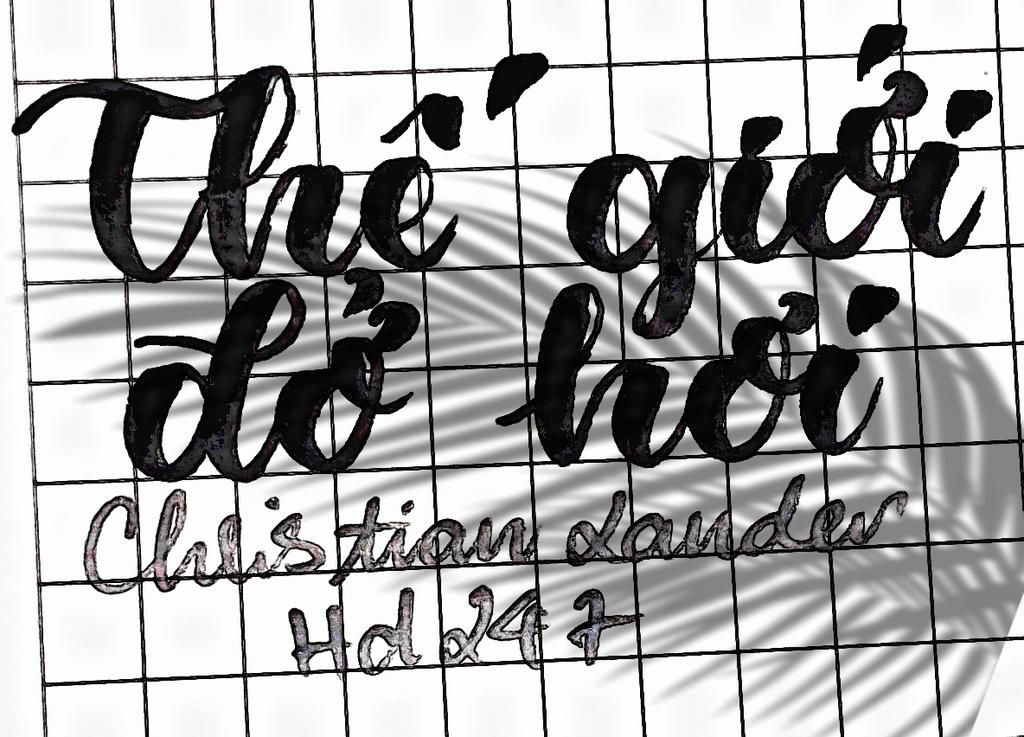 Thế giới
đở hơi
Christian Lander
Hd 247